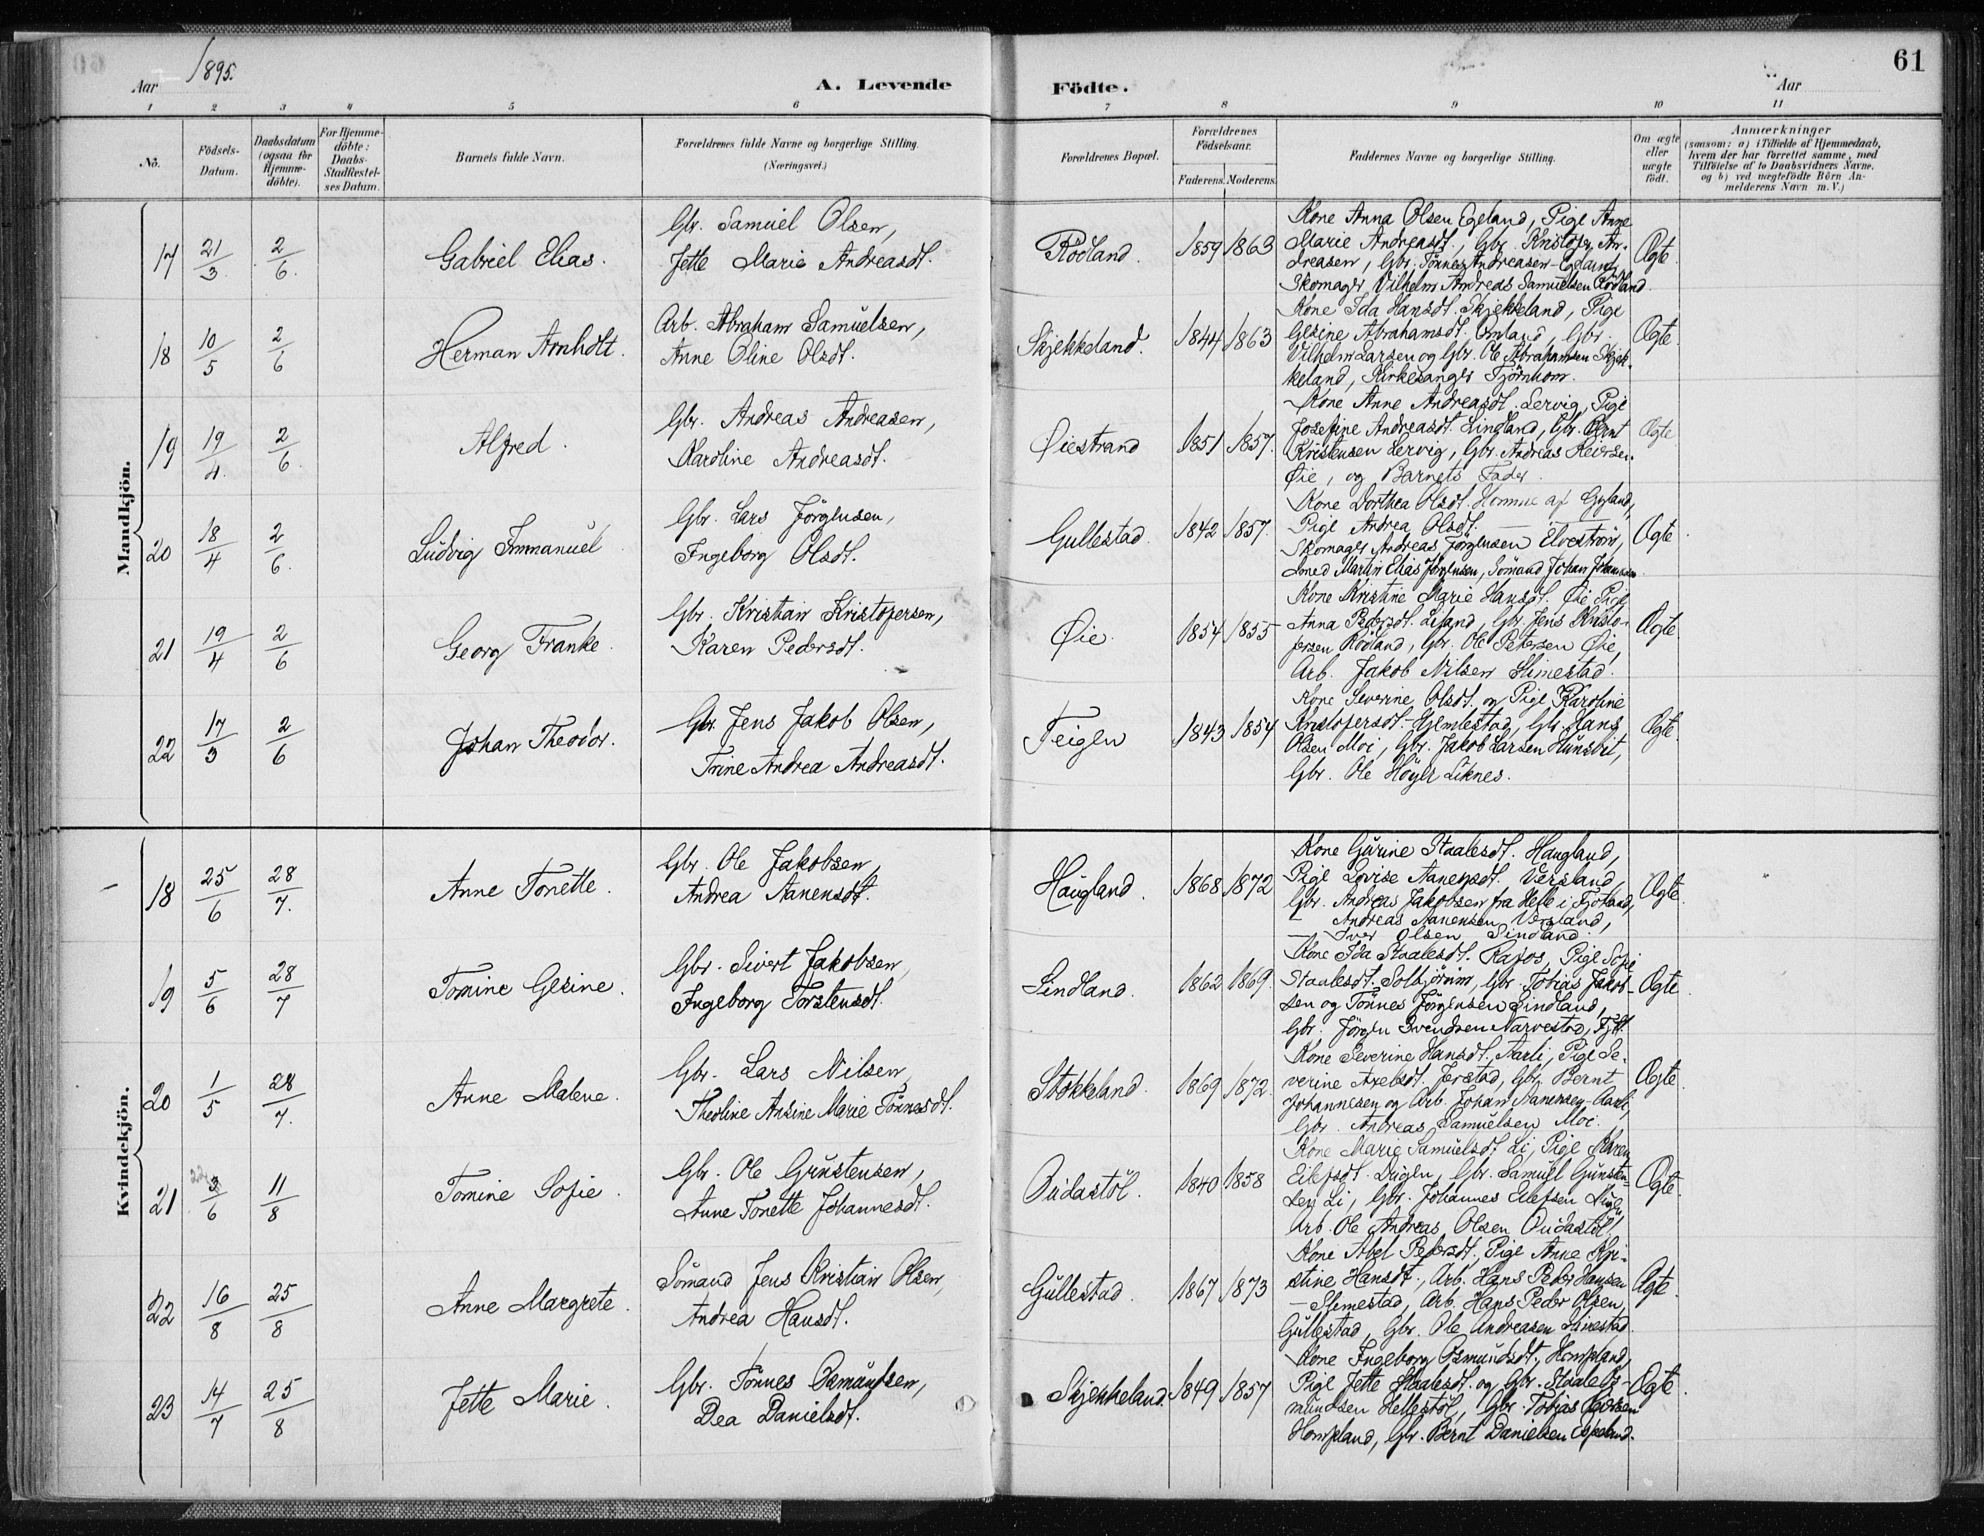 Aar 1895.
A. Levende Födte.
Aar
61
1 2 3 4 5 6 7 8 9 10 11
No.
Födsels-
Datum.
Daabsdatum
(ogsaa for
Hjemme-
döbte).
For Hjemme-
döbte:
Daabs-
Stadfæstel-
ses Datum.
Barnets fulde Navn.
Forældrenes fulde Navne og borgerlige Stilling.
(Næringsvei.)
Forældrenes Bopæl.
Forældrenes
Födselsaar.
Faderens. Moderens.
Faddernes Navne og borgerlige Stilling.
Om ægte
eller
uægte
födt.
Anmærkninger
(saasom: a) i Tilfælde af Hjemmedaab,
hvem der har forrettet samme, med
Tilföielse af to Daabsvidners Navne,
og b) ved uægtefödte Börn An-
melderens Navn m. V.)
Mandkjön.
17 21/3 2/6 Gabriel Elias.
Gbr. Samuel Olsen,
Jette Marie Andreasdt.
Rödland. 1859 1863
Kone Anna Olsen Egeland, Pige Anne
Marie Andreasdt., Gbr. Kristofer An-
dreasen, Gbr. Tönnes Andreasen Egeland,
Skomager Vilhelm Andreas Samuelsen Rödland
Ægte
18 10/5 2/6 Herman Arnholt.
Arb. Abraham Samuelsen,
Anne Oline Olsdt.
Skjekkeland. 1844 1863
Kone Ida Hansdt. Skjekkeland, Pige
Gesine Abrahamsdt. Omland, Gbr.
Vilhelm Larsen og Gbr. Ole Abrahamsen Skjek-
keland, Kirkesanger Tjörnhom.
Ægte
19 19/4 2/6 Alfred.
Gbr. Andreas Andreasen,
Karoline Andreasdt.
Öiestrand 1851 1857.
Kone Anne Andreasdt. Lervig, Pige
Josefine Andreasdt. Lindland, Gbr. Bernt
Kristensen Lervig, Gbr. Andreas Reiersen
Öie, og Barnets Fader.
Ægte
20 18/4 2/6 Ludvig Immanuel
Gbr. Lars Jörgensen,
Ingeborg Olsdt.
Gullestad. 1842 1857.
Kone Dorthea Olsdt. Homme af Gyland,
Pige Andrea Olsdt. —
Skomager Andreas Jörgensen Elveström,
Smed Martin Elias Jörgensen, Sömand Johan Johansen
Ægte
21 19/4 2/6 Georg Franke.
Gbr. Kristian Kristofersen,
Karen Pedersdt.
Öie. 1854 1855
Kone Kristine Marie Hansdt. Öie, Pige
Anna Pedersdt. Lisand, Gbr. Jens Kristo-
fersen Rödland, Gbr. Ole Petersen Öie,
Arb. Jakob Nilsen Slimestad.
Ægte
22 17/3 2/6 Johan Theodor.
Gbr. Jens Jakob Olsen,
Trine Andrea Andreasdt.
Feigen 1843 1854
Kone Severine Olsdt. og Pige Karoline
Kristofersdt. Hjemlestad, Gbr. Hans
Olsen Moi, Gbr. Jakob Larsen Hunsbet,
Gbr. Ole Höyer Liknes.
Ægte
Kvindekjön.
18 25/6 28/7. Anne Tonette.
Gbr. Ole Jakobsen,
Andrea Aanensdt.
Haugland. 1868 1872
Kone Gurine Staalesdt. Haugland,
Pige Lovise Aanensdt. Versland,
Gbr. Andreas Jakobsen fra Helle i Fjotland,
— Andreas Aanensen Versland,
— Iver Olsen Sindland.
Ægte.
19 5/6 28/7 Tomine Gesine.
Gbr. Sivert Jakobsen,
Ingeborg Torstensdt.
Sindland. 1862 1869.
Kone Ida Staalesdt. Rafos, Pige Sofie
Staalesdt. Solsjörum, Gbr. Tobias Jakob-
sen og Tönnes Jörgensen Sindland,
Gbr. Jörgen Svendsen Narvestad, Fjotl.
Ægte
20 1/5 28/7. Anne Malene.
Gbr. Lars Nilsen,
Theoline Ansine Marie Tönnesdt.
Stokkeland. 1869 1872.
Kone Severine Hansdt. Aarli, Pige Se-
verine Axelsdt. Jerstad, Gbr. Bernt
Johannesen og Arb. Johan Aanensen Aarli,
Gbr. Andreas Samuelsen Moi.
Ægte
21 3/6 11/8 Tomine Sofie.
Gbr. Ole Gunstensen,
Anne Tonette Johannesdt.
Oudastöl. 1840 1858
Kone Marie Samuelsdt. Li, Pige Karen
Eilefsdt. Dugen, Gbr. Samuel Gunsten-
sen Li, Gbr. Johannes Eilefsen
Arb. Ole Andreas Olsen Oudastöl.
Ægte.
22 16/8 25/8 Anne Margrete.
Sömand Jens Kristian Olsen,
Andrea Hansdt.
Gullestad. 1867 1873
Kone Abel Pedersdt., Pige Anne Kri-
stine Hansdt., Arb. Hans Peder Hansen
— Slimestad, Arb. Hans Peder Olsen,
Gullestad, Gbr. Ole Andreasen Slimestad.
Ægte.
23 14/7 25/8 Jette Marie.
Gbr. Tönnes Osmundsen,
Dea Danielsdt.
Skjekkeland. 1849 1857
Kone Ingeborg Osmundsdt. Hompland,
Pige Jette Staalesdt. og Gbr. Staale Os-
mundsen Hellestöl, Gbr. Tobias
Hompland, Gbr. Bernt Danielsen Espeland.
Ægte.